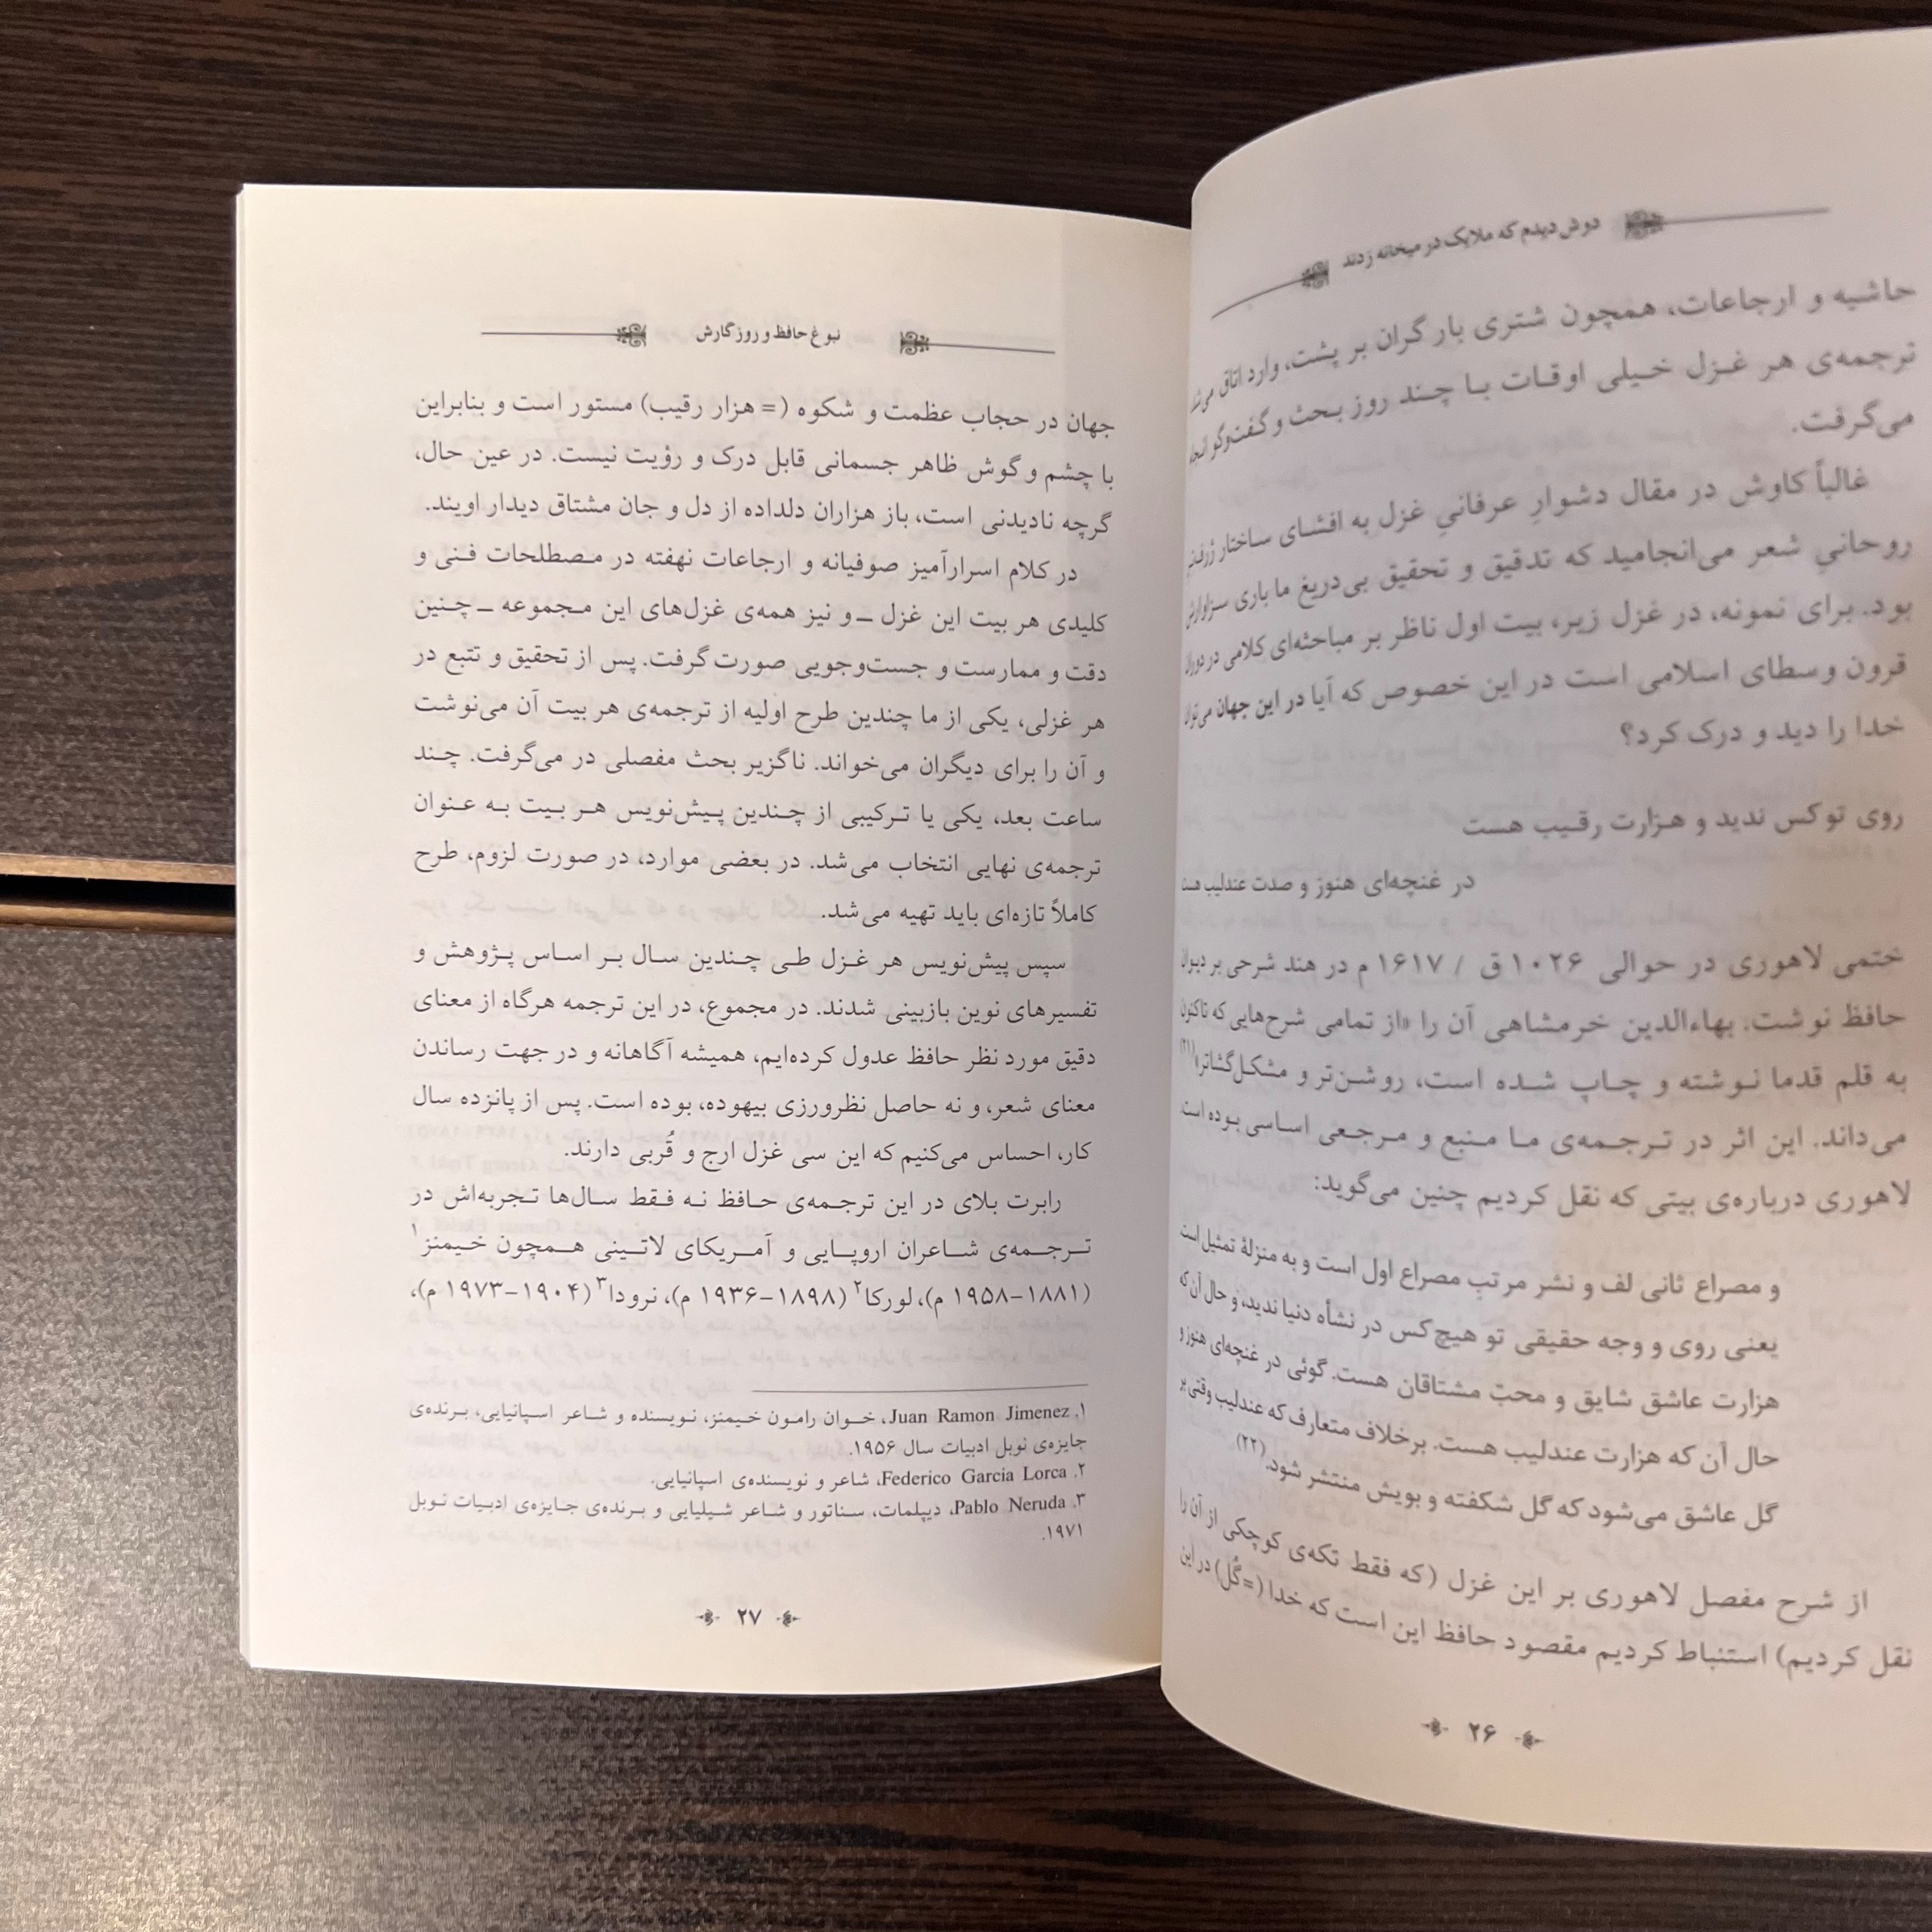 دوش دیدم که ملایک در میخانه زدند
حاشیه و ارجاعات، همچون شتری بار گران بر پشت، وارد اتاق می‌شد.
ترجمه‌ی هر غزل خیلی اوقات با چند روز بحث و گفت‌وگو انجام
می‌گرفت.
غالباً کاوش در مقال دشوارِ عرفانیِ غزل به افشای ساختار ژرف‌بنیانِ
روحانیِ شعر می‌انجامید که تدقیق و تحقیق بی‌دریغ ما باری سزاوارش
بود. برای نمونه، در غزل زیر، بیت اول ناظر بر مباحثه‌ای کلامی در دوران
قرون وسطای اسلامی است در این خصوص که آیا در این جهان می‌توان
خدا را دید و درک کرد؟
روی تو کس ندید و هزارت رقیب هست
در غنچه‌ای هنوز و صدت عندلیب هست
ختمی لاهوری در حوالی ۱۰۲۶ ق / ۱۶۱۷ م در هند شرحی بر دیوان
حافظ نوشت. بهاءالدین خرمشاهی آن را «از تمامی شرح‌هایی که تاکنون
به قلم قدما نوشته و چاپ شده است، روشن‌تر و مشکل‌گشاتر»(۲۱)
می‌داند. این اثر در ترجمه‌ی ما منبع و مرجعی اساسی بوده است.
لاهوری درباره‌ی بیتی که نقل کردیم چنین می‌گوید:
و مصراع ثانی لف و نشر مرتبِ مصراع اول است و به منزلهٔ تمثیل است
یعنی روی و وجه حقیقی تو هیچ‌کس در نشأه دنیا ندید، و حال آن که
هزارت عاشق شایق و محبّ مشتاقان هست. گوئی در غنچه‌ای هنوز و
حال آن که هزارت عندلیب هست. برخلاف متعارف که عندلیب وقتی بر
گل عاشق می‌شود که گل شکفته و بویش منتشر شود.(۲۲)
از شرح مفصل لاهوری بر این غزل (که فقط تکه‌ی کوچکی از آن را
نقل کردیم) استنباط کردیم مقصود حافظ این است که خدا (=گُل) در این
۲۶
نبوغ حافظ و روزگارش
جهان در حجاب عظمت و شکوه (= هزار رقیب) مستور است و بنابراین
با چشم و گوش ظاهر جسمانی قابل درک و رؤیت نیست. در عین حال،
گرچه نادیدنی است، باز هزاران دلداده از دل و جان مشتاق دیدار اویند.
در کلام اسرارآمیز صوفیانه و ارجاعات نهفته در مصطلحات فنی و
کلیدی هر بیت این غزل ــ و نیز همه‌ی غزل‌های این مجموعه ــ چنین
دقت و ممارست و جست‌وجویی صورت گرفت. پس از تحقیق و تتبع در
هر غزلی، یکی از ما چندین طرح اولیه از ترجمه‌ی هر بیت آن می‌نوشت
و آن را برای دیگران می‌خواند. ناگزیر بحث مفصلی در می‌گرفت. چند
ساعت بعد، یکی یا ترکیبی از چندین پیش‌نویس هر بیت به عنوان
ترجمه‌ی نهایی انتخاب می‌شد. در بعضی موارد، در صورت لزوم، طرح
کاملاً تازه‌ای باید تهیه می‌شد.
سپس پیش‌نویس هر غزل طی چندین سال بر اساس پژوهش و
تفسیرهای نوین بازبینی شدند. در مجموع، در این ترجمه هرگاه از معنای
دقیق مورد نظر حافظ عدول کرده‌ایم، همیشه آگاهانه و در جهت رساندن
معنای شعر، و نه حاصل نظرورزی بیهوده، بوده است. پس از پانزده سال
کار، احساس می‌کنیم که این سی غزل ارج و قُربی دارند.
رابرت بلای در این ترجمه‌ی حافظ نه فقط سال‌ها تجربه‌اش در
ترجمه‌ی شاعران اروپایی و آمریکای لاتینی همچون خیمنز۱
(۱۸۸۱-۱۹۵۸ م)، لورکا۲ (۱۸۹۸-۱۹۳۶ م)، نرودا۳ (۱۹۰۴-۱۹۷۳ م)،
۱. Juan Ramon Jimenez، خوان رامون خیمنز، نویسنده و شاعر اسپانیایی، برنده‌ی
جایزه‌ی نوبل ادبیات سال ۱۹۵۶.
۲. Federico Garcia Lorca، شاعر و نویسنده‌ی اسپانیایی.
۳. Pablo Neruda، دیپلمات، سناتور و شاعر شیلیایی و برنده‌ی جایزه‌ی ادبیات نوبل
۱۹۷۱.
۲۷